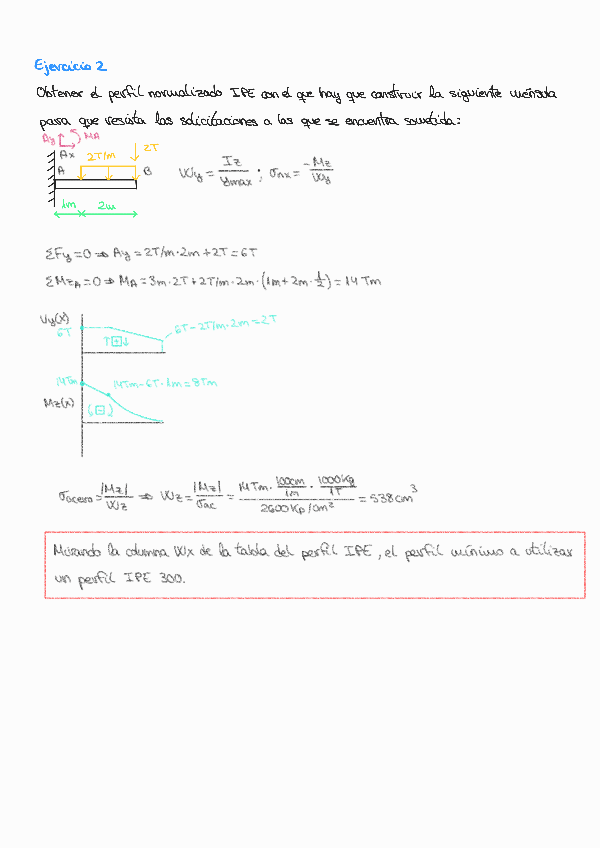 Ejercicio 2
Obtener el perfil normalizado IPE con el que hay que construir la siguiente ménsula
para que resista las solicitaciones a las que se encuentra sometida:
Ay MA
Ax 2T/m 2T
A B
1m 2m
Wy = Iz / ymax ; σnx = -Mz / Wy
ΣFy = 0 ⇒ Ay = 2T/m · 2m + 2T = 6T
ΣMzA = 0 ⇒ MA = 3m · 2T + 2T/m · 2m · (1m + 2m · 1/2) = 14 Tm
Vy(x)
6T
6T - 2T/m · 2m = 2T
↑ + ↓
14Tm
14Tm - 6T · 1m = 8Tm
Mz(x)
( - )
σacero = |Mz| / Wz ⇒ Wz = |Mz| / σac = 14Tm · 100cm/1m · 1000Kg/1T / 2600Kp/cm² = 538cm³
Mirando la columna Wx de la tabla del perfil IPE, el perfil mínimo a utilizar
un perfil IPE 300.